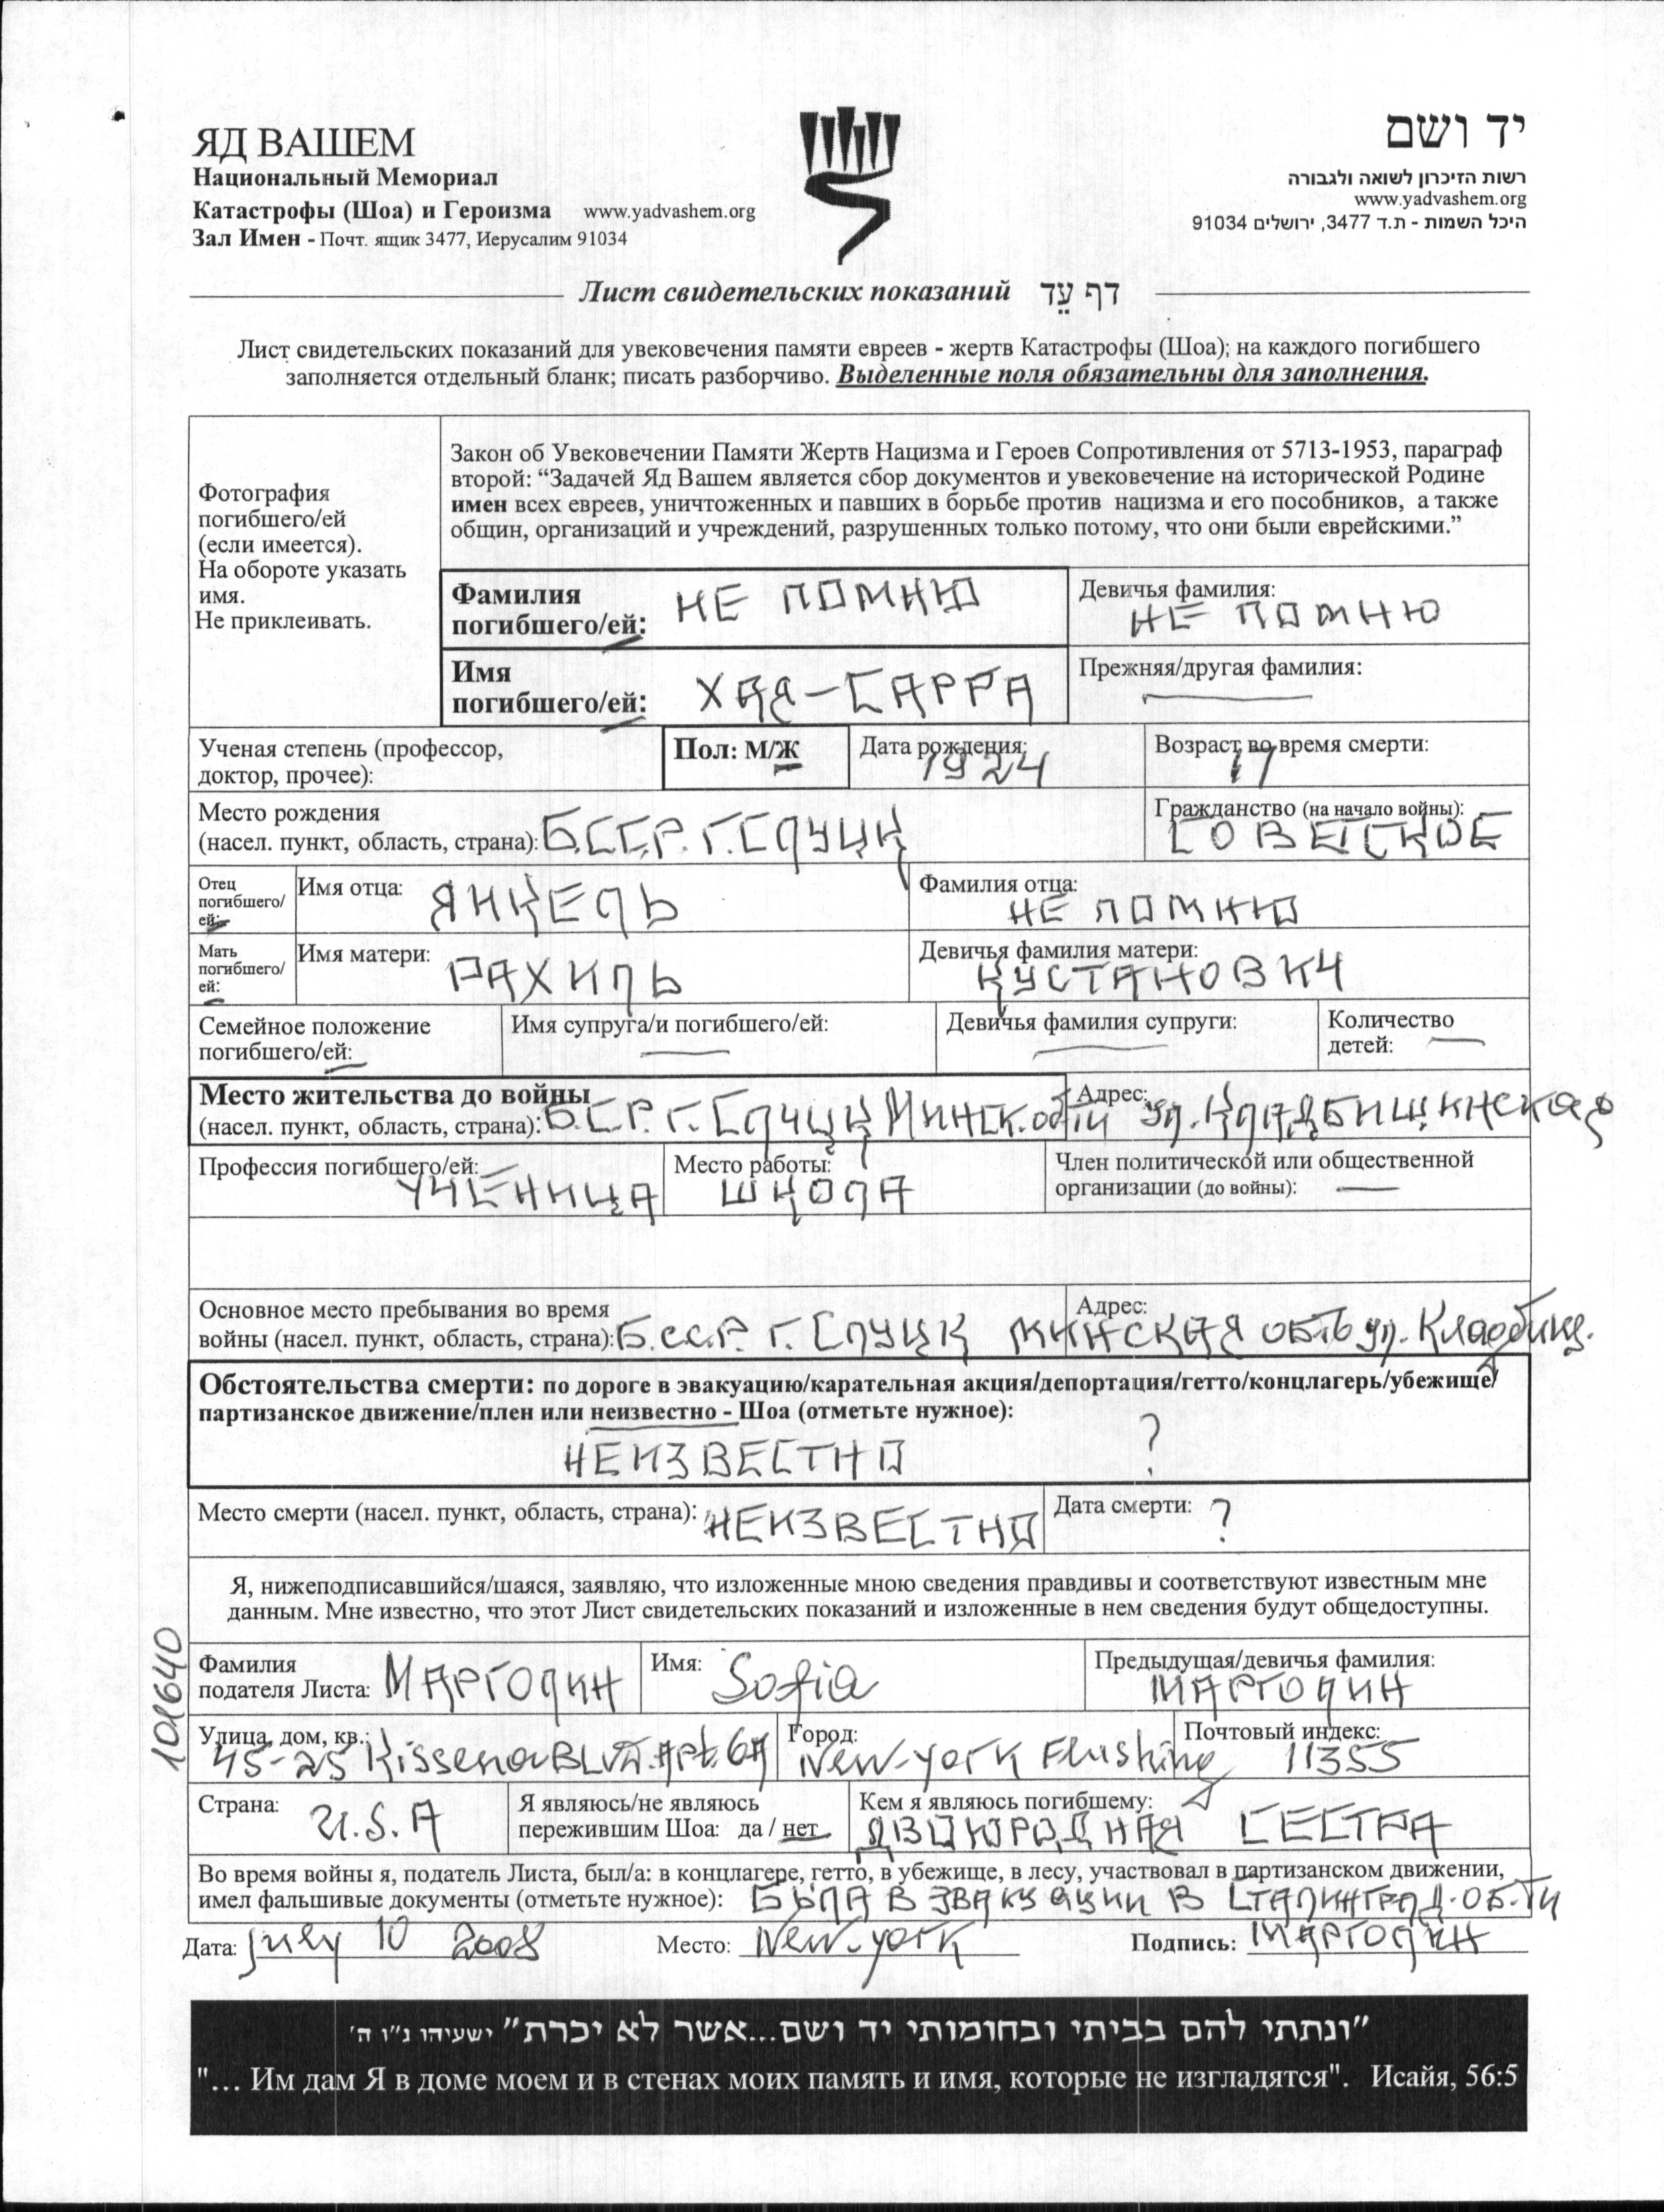 ЯД ВАШЕМ
Национальный Мемориал
Катастрофы (Шоа) и Героизма www.yadvashem.org
Зал Имен - Почт. ящик 3477, Иерусалим 91034
יד ושם
רשות הזיכרון לשואה ולגבורה
www.yadvashem.org
היכל השמות - ת.ד 3477, ירושלים 91034
Лист свидетельских показаний דף עֵד
Лист свидетельских показаний для увековечения памяти евреев - жертв Катастрофы (Шоа); на каждого погибшего
заполняется отдельный бланк; писать разборчиво. Выделенные поля обязательны для заполнения.
Фотография
погибшего/ей
(если имеется).
На обороте указать
имя.
Не приклеивать.
Закон об Увековечении Памяти Жертв Нацизма и Героев Сопротивления от 5713-1953, параграф
второй: “Задачей Яд Вашем является сбор документов и увековечение на исторической Родине
имен всех евреев, уничтоженных и павших в борьбе против нацизма и его пособников, а также
общин, организаций и учреждений, разрушенных только потому, что они были еврейскими.”
Фамилия
погибшего/ей: НЕ ПОМНЮ
Девичья фамилия:
НЕ ПОМНЮ
Имя
погибшего/ей: ХАЯ-САРРА
Прежняя/другая фамилия:
Ученая степень (профессор,
доктор, прочее):
Пол: М/Ж
Дата рождения:
1924
Возраст во время смерти:
17
Место рождения
(насел. пункт, область, страна): Б.С.С.Р. Г. СЛУЦК
Гражданство (на начало войны):
СОВЕТСКОЕ
Отец
погибшего/
ей:
Имя отца: ЯНКЕЛЬ
Фамилия отца:
НЕ ПОМНЮ
Мать
погибшего/
ей:
Имя матери: РАХИЛЬ
Девичья фамилия матери:
КУСТАНОВКЧ
Семейное положение
погибшего/ей:
Имя супруга/и погибшего/ей:
Девичья фамилия супруги:
Количество
детей:
Место жительства до войны
(насел. пункт, область, страна): Б.С.Р. Г. СЛУЦК МИНСК. обТи
Адрес: ул. КЛАДБИЩИНСКАЯ
Профессия погибшего/ей:
УЧЕНИЦА
Место работы:
ШКОЛА
Член политической или общественной
организации (до войны):
Основное место пребывания во время
войны (насел. пункт, область, страна): Б.С.С.Р. Г. СЛУЦК МИНСКАЯ ОБТЬ
Адрес:
ул. Кладбищ.
Обстоятельства смерти: по дороге в эвакуацию/карательная акция/депортация/гетто/концлагерь/убежище/
партизанское движение/плен или неизвестно - Шоа (отметьте нужное):
НЕИЗВЕСТНО ?
Место смерти (насел. пункт, область, страна): НЕИЗВЕСТНО
Дата смерти: ?
Я, нижеподписавшийся/шаяся, заявляю, что изложенные мною сведения правдивы и соответствуют известным мне
данным. Мне известно, что этот Лист свидетельских показаний и изложенные в нем сведения будут общедоступны.
101640
Фамилия
подателя Листа: МАРГОЛИН
Имя: Sofia
Предыдущая/девичья фамилия:
МАРГОЛИН
Улица, дом, кв.:
45-25 Kissena BLVD. Apt. 6A
Город:
New-york Flushing
Почтовый индекс:
11355
Страна: U.S.A
Я являюсь/не являюсь
пережившим Шоа: да / нет
Кем я являюсь погибшему:
ДВОЮРОДНАЯ СЕСТРА
Во время войны я, податель Листа, был/а: в концлагере, гетто, в убежище, в лесу, участвовал в партизанском движении,
имел фальшивые документы (отметьте нужное): БЫЛА В ЭВАКУАЦИИ В СТАЛИНГРАД. ОБ.ТИ
Дата: July 10 2008 Место: New-york Подпись: МАРГОЛИН
"ונתתי להם בביתי ובחומותי יד ושם...אשר לא יכרת" ישעיהו נ"ו ה'
"... Им дам Я в доме моем и в стенах моих память и имя, которые не изгладятся". Исайя, 56:5